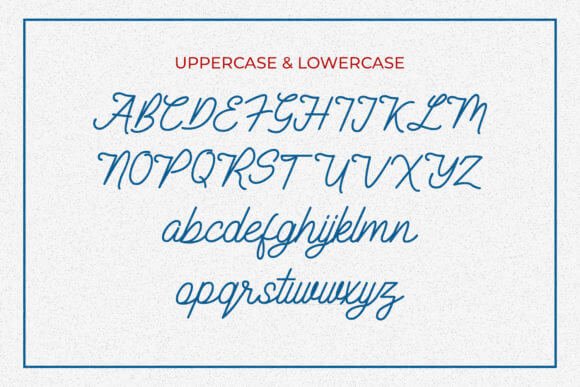 UPPERCASE & LOWERCASE
ABCDEFGHIJKLM
NOPQRSTUVXYZ
abcdefghijklmn
opqrstuvwxyz